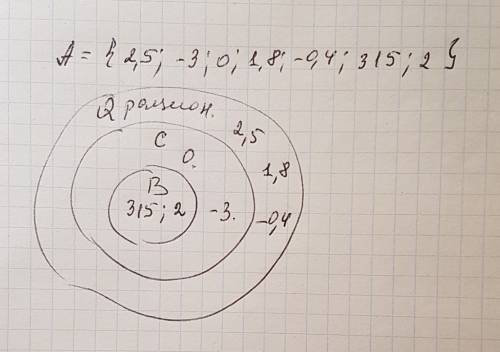 A = { 2,5; -3; 0; 1,8; -0,4; 315; 2 }
Q рацион.
2,5
C
0.
1,8
B
315; 2
-3.
-0,4